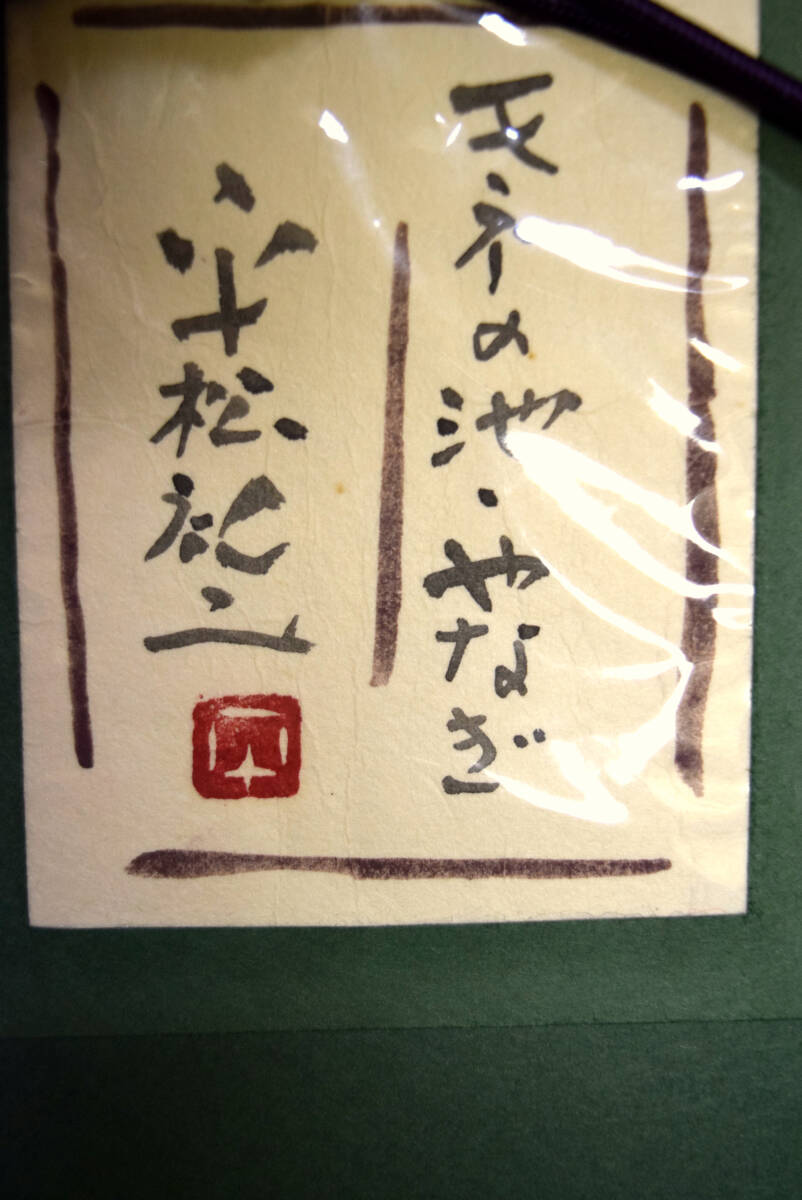 モネの池・やなぎ
平松礼二